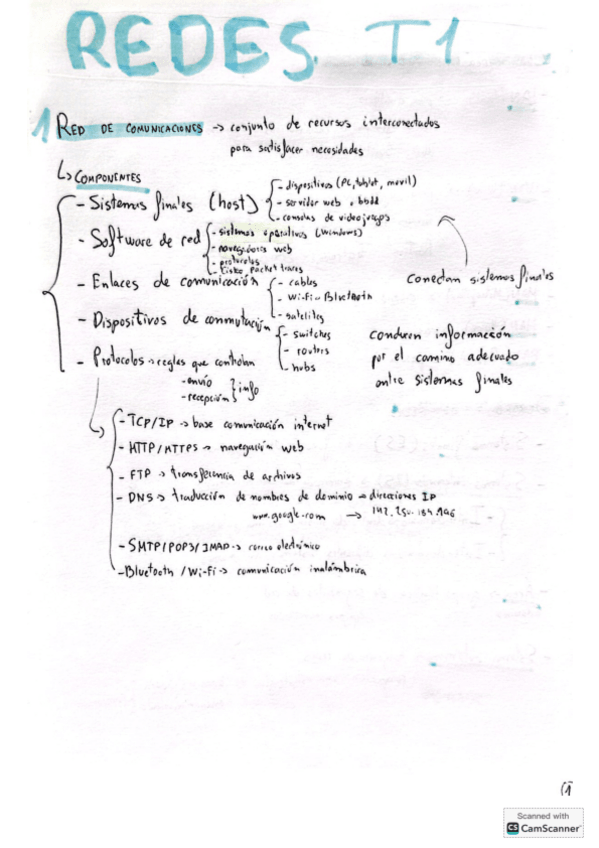 REDES T1
1 RED DE COMUNICACIONES -> conjunto de recursos interconectados
para satisfacer necesidades
↳ COMPONENTES
- Sistemas finales (host)
- dispositivos (PC, tablet, movil)
- servidor web o bbdd
- consolas de videojuegos
- Software de red
- sistemas operativos (Windows)
- navegadores web
- protocolos
- Cisko Packet tracer
- Enlaces de comunicación
- cables
- Wi-Fi o Bluetooth
- satelites
Conectan sistemas finales
- Dispositivos de conmutación
- switches
- routers
- hubs
conducen información
por el camino adecuado
entre sistemas finales
- Protocolos -> reglas que controlan
- envío
- recepción
info
- TCP/IP -> base comunicación internet
- HTTP/HTTPS -> navegación web
- FTP -> transferencia de archivos
- DNS -> traducción de nombres de dominio -> direcciones IP
www.google.com ->
- SMTP/POP3/IMAP -> correo electrónico
- Bluetooth / Wi-Fi -> comunicación inalámbrica
1
Scanned with
CS CamScanner